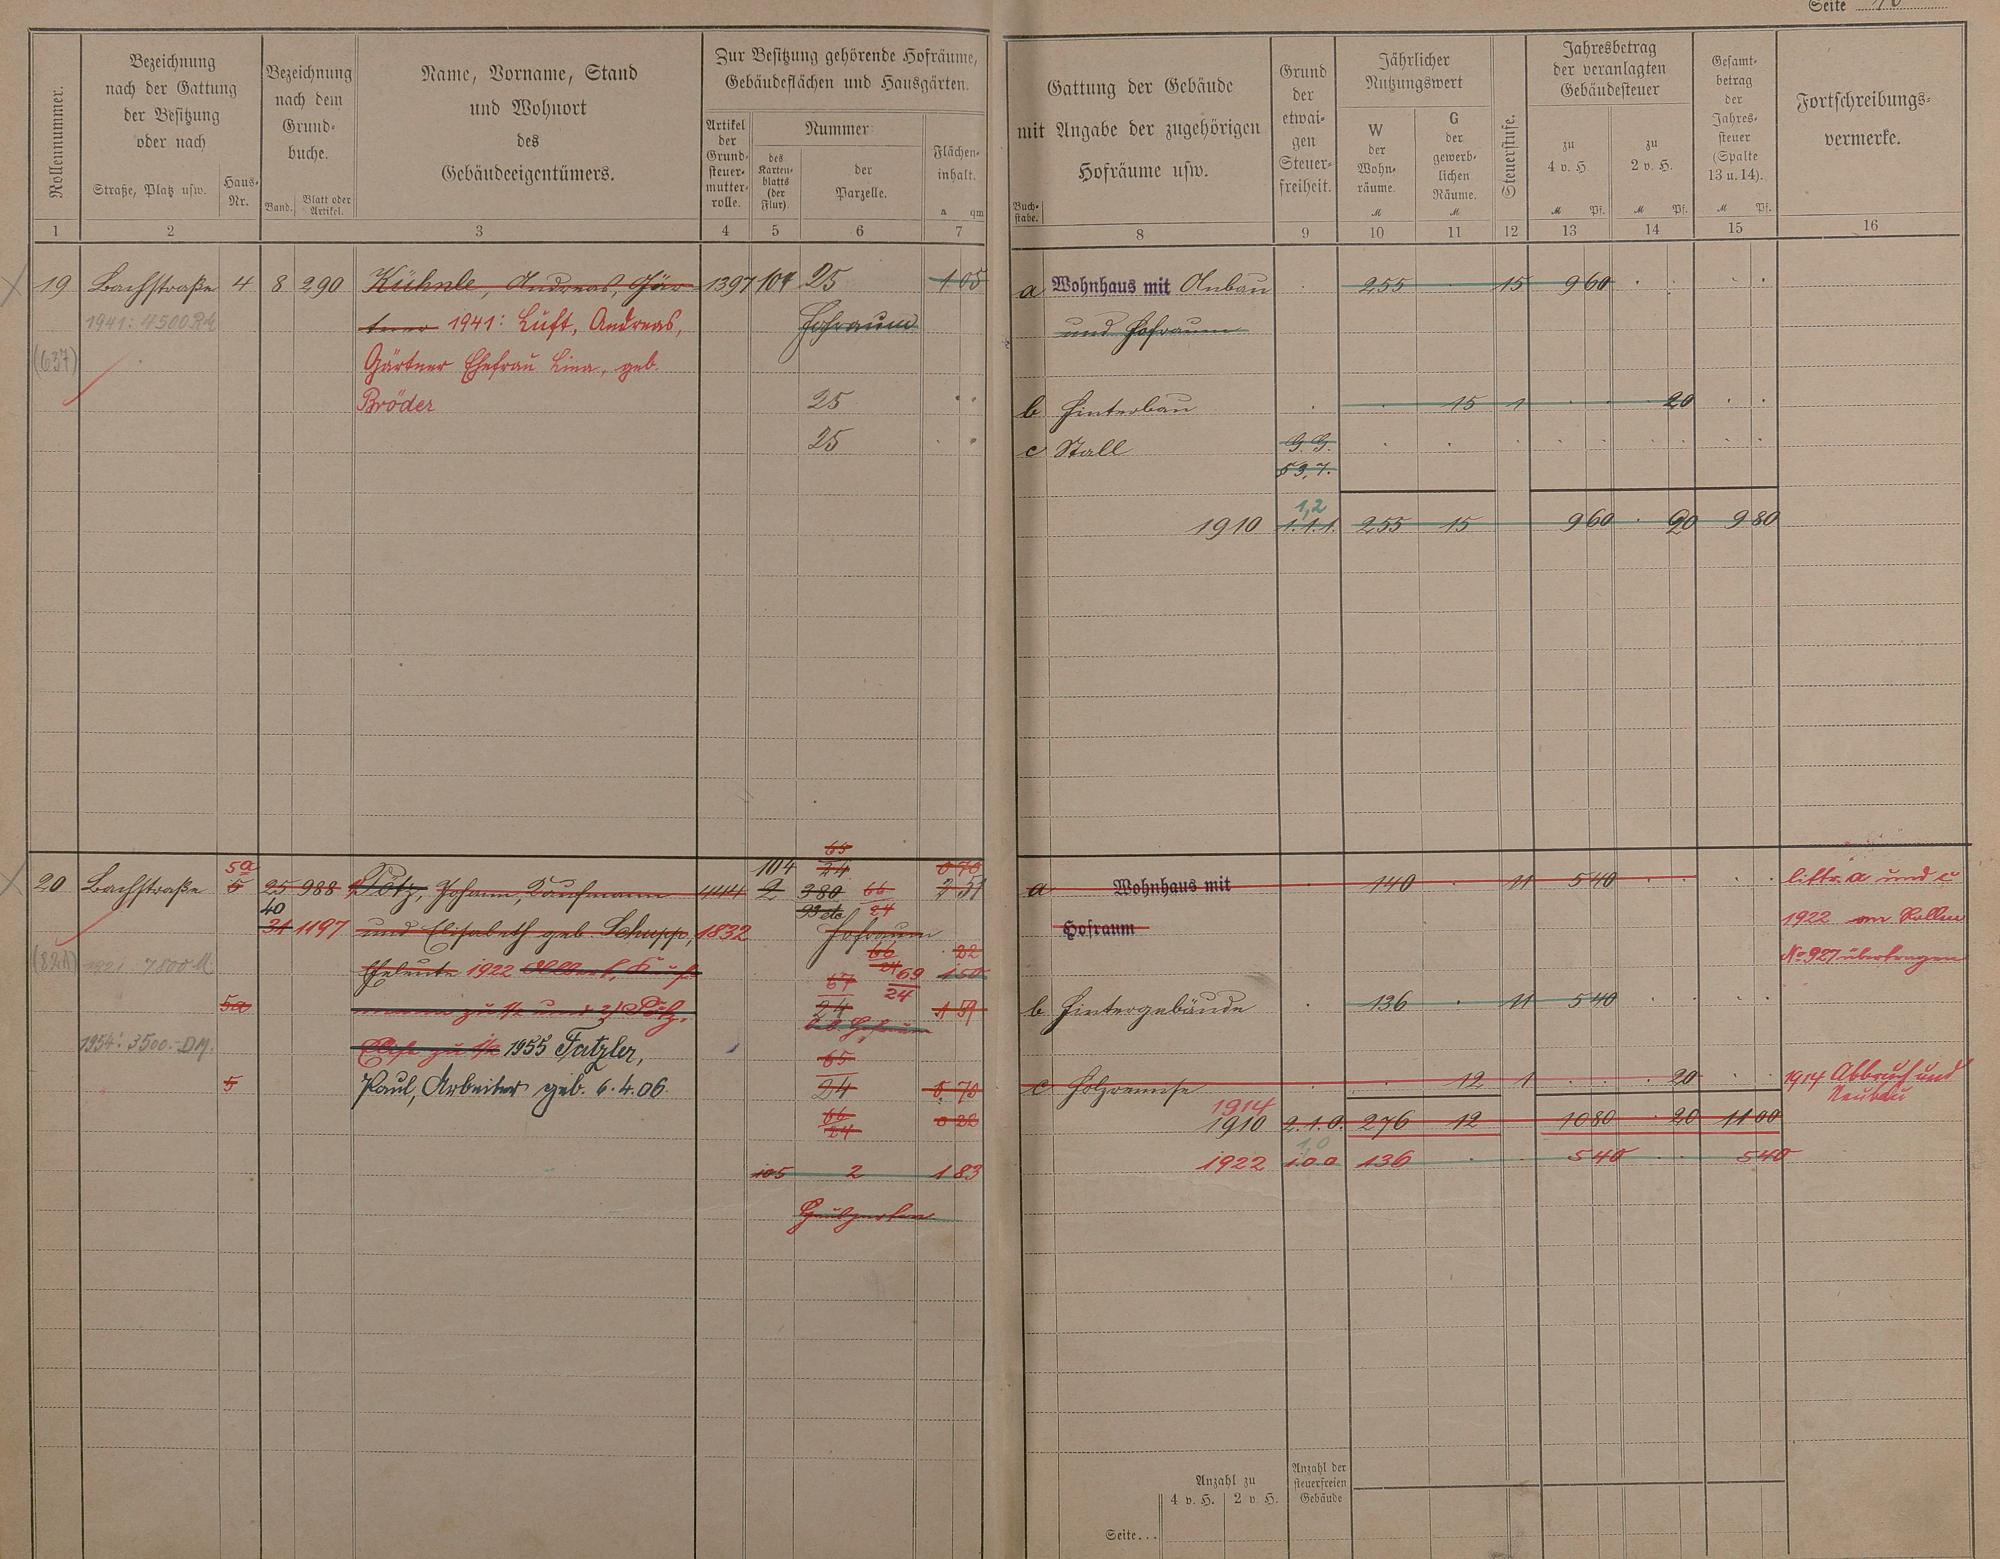 Seite 10
Rollennummer.
Bezeichnung
nach der Gattung
der Besitzung
oder nach
Straße, Platz usw.
Haus-
Nr.
Bezeichnung
nach dem
Grund-
buche.
Band.
Blatt oder
Artikel.
Name, Vorname, Stand
und Wohnort
des
Gebäudeeigentümers.
Zur Besitzung gehörende Hofräume,
Gebäudeflächen und Hausgärten.
Artikel
der
Grund-
steuer-
mutter-
rolle.
Nummer
des
Karten-
blatts
(der
Flur)
der
Parzelle.
Flächen-
inhalt.
a qm
Buch-
stabe.
Gattung der Gebäude
mit Angabe der zugehörigen
Hofräume usw.
Grund
der
etwai-
gen
Steuer-
freiheit.
Jährlicher
Nutzungswert
W
der
Wohn-
räume.
M
G
der
gewerb-
lichen
Räume.
M
Steuerstufe.
Jahresbetrag
der veranlagten
Gebäudesteuer
zu
4 v. H.
M Pf.
zu
2 v. H.
M Pf.
Gesamt-
betrag
der
Jahres-
steuer
(Spalte
13 u. 14).
M Pf.
Fortschreibungs-
vermerke.
1 2 3 4 5 6 7 8 9 10 11 12 13 14 15 16
19 Bachstraße 4 8 290 Kühnle, Andreas, Gär- 1397 104 25 1 05 a Wohnhaus mit Anbau 255 15 9 60
1941: 4500 RM tner 1941: Luft, Andreas, Hofraum und Hofraum
(637) Gärtner Ehefrau Lina, geb.
Bröder 25 b Hinterbau 15 1 20
25 c Stall G.G.
53,7.
1,2
1910 1.1.1. 255 15 9 60 20 9 80
65
5a 104 24 0 70
20 Bachstraße 5 25 988 Pötz, Johann, Kaufmann 1444 2 380 66 2 51 a Wohnhaus mit 140 11 5 40 littr. a und c
40 93 etc 24
31 1197 und Elisabeth geb. Schupp, 1832 Hofraum Hofraum 1922 an Rollen
66 22
(821) 7800 M Eheleute 1922 24 69 1 50 No 927 übertragen
67 24
5a zu 1/2 und 2) Pötz, 24 1 59 b Hintergebäude 136 11 5 40
1954: 3500.- DM. zu 1/2 1955 Tatzler,
65
5 Paul, Arbeiter geb. 6.4.06 24 0 70 c Holzremise 12 1 20 1914 Abbruch und
Neubau
1914
66
24 0 22 1910 2.1.0. 276 12 10 80 20 11 00
1,0
105 2 1 83 1922 1.0.0 136 5 40 5 40
Anzahl zu
4 v. H. 2 v. H.
Anzahl der
steuerfreien
Gebäude
Seite...